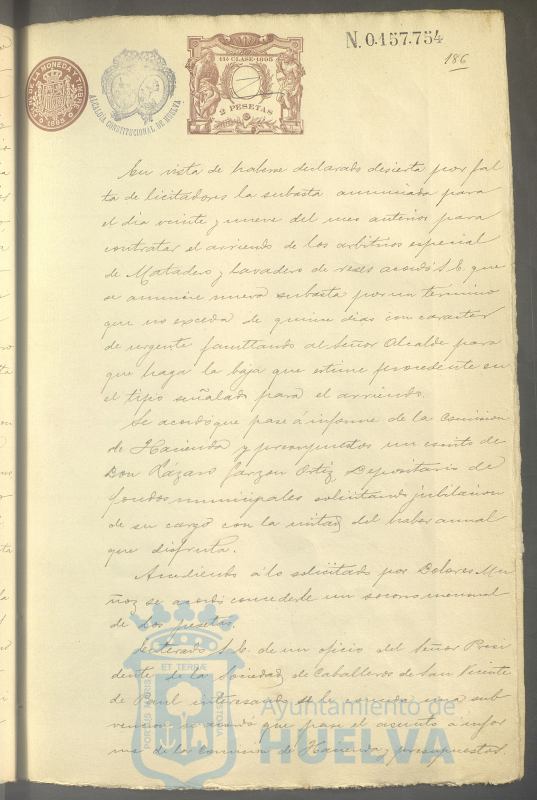 N. 0.157.754
186
11ª CLASE-1895
2 PESETAS
ALCALDIA CONSTITUCIONAL DE HUELVA
En vista de haberse declarado desierta por fal
ta de licitadores la subasta anunciada para
el dia veinte y nueve del mes anterior para
contratar el arriendo de los arbitrios especial
de Matadero y lavadero de reses acordó S.E. que
se anuncie nueva subasta por un término
que no exceda de quince dias con caracter
de urgente facultando al Señor Alcalde para
que haga la baja que estime procedente en
el tipo señalado para el arriendo.
Se acordó que pase á informe de la Comision
de Hacienda y presupuestos un escrito de
Don Lázaro Garzon Ortiz Depositario de
fondos municipales solicitando jubilacion
de su cargo con la mitad del haber anual
que disfruta.
Accediendo á lo solicitado por Dolores Mu
ñoz se acordó concederle un socorro mensual
de dos pesetas.
Enterado S.E. de un oficio del Señor Presi
dente de la Sociedad de Caballeros de San Vicente
de Paul interesando se le conceda una sub
vencion, acordó que pase el asunto á infor
me de la Comision de Hacienda y presupuestos.
ET TERRÆ
PORTUS MARIS
CUSTODIA
Ayuntamiento de
HUELVA